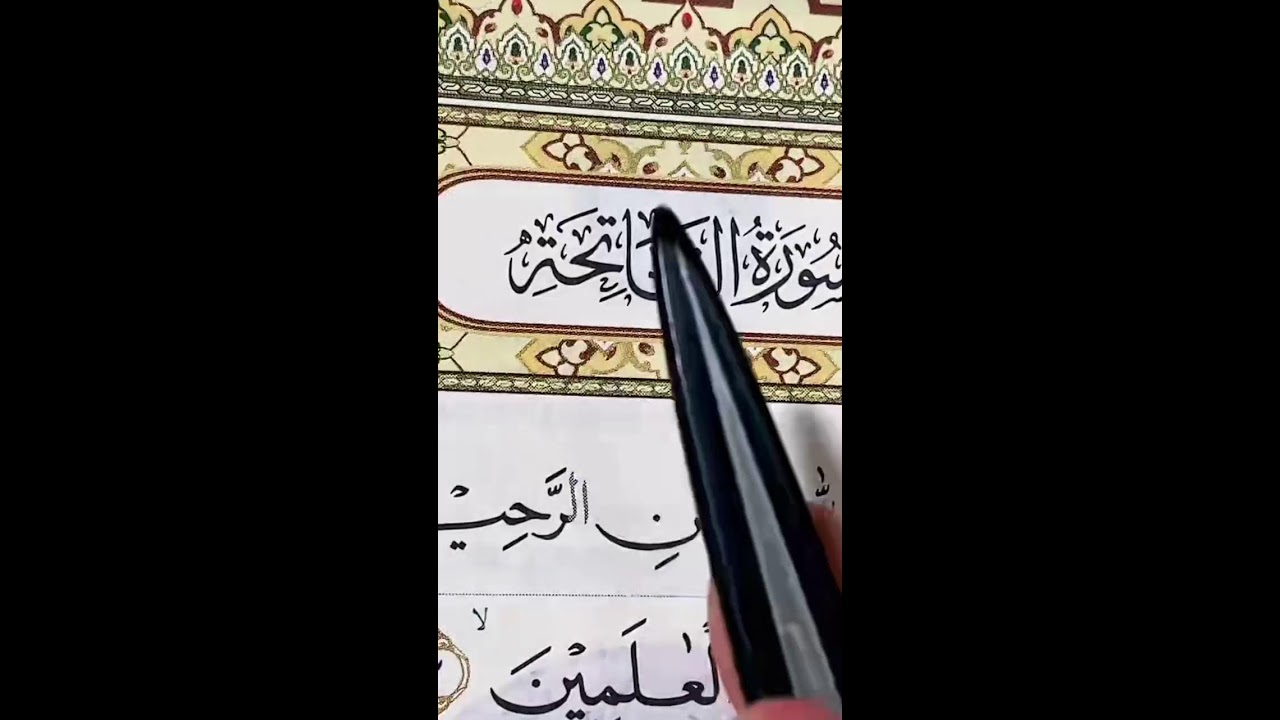 سُورَةُ الْفَاتِحَةِ
نِ الرَّحِيْ
لا
لْعٰلَمِيْنَ